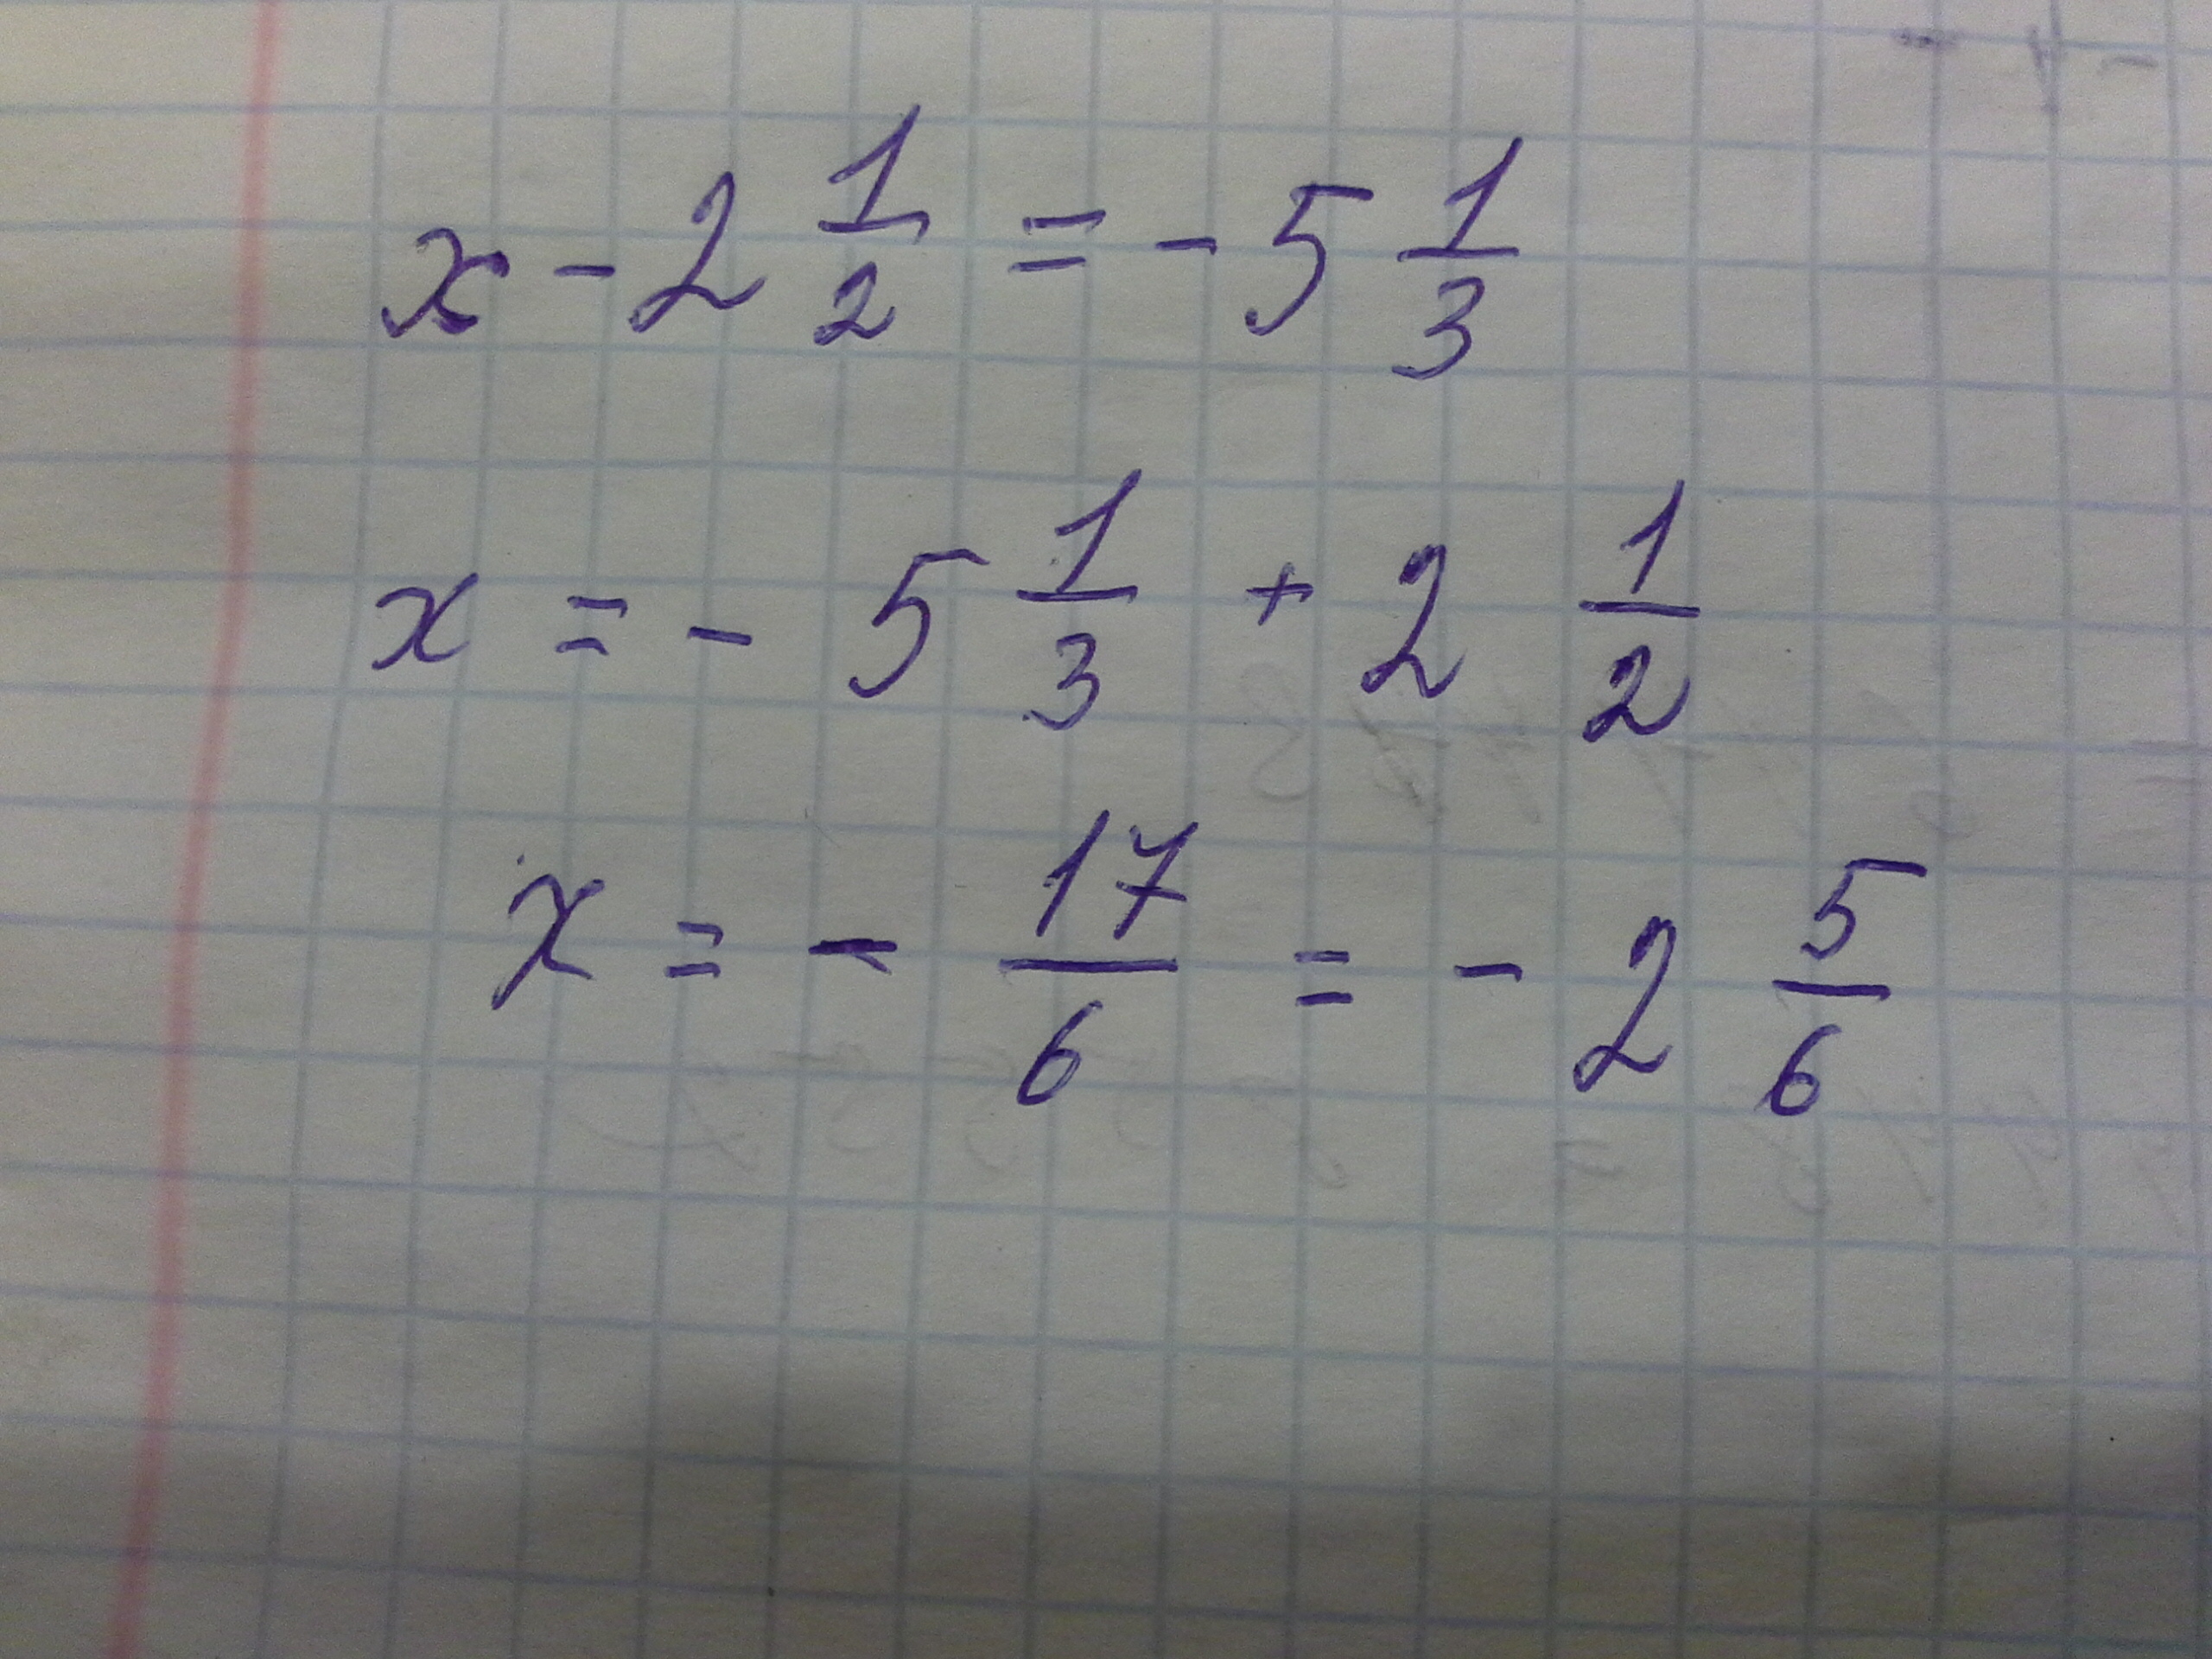 x - 2 1/2 = - 5 1/3
x = - 5 1/3 + 2 1/2
x = - 17/6 = - 2 5/6